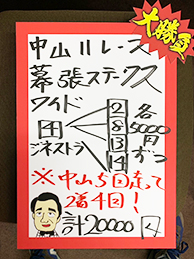 大勝負
中山11レース
幕張ステークス
ワイド
4
ジネストラ
2
8
13
14
各
5000
円
ずつ
※中山5回走って
2着4回!
計20000円